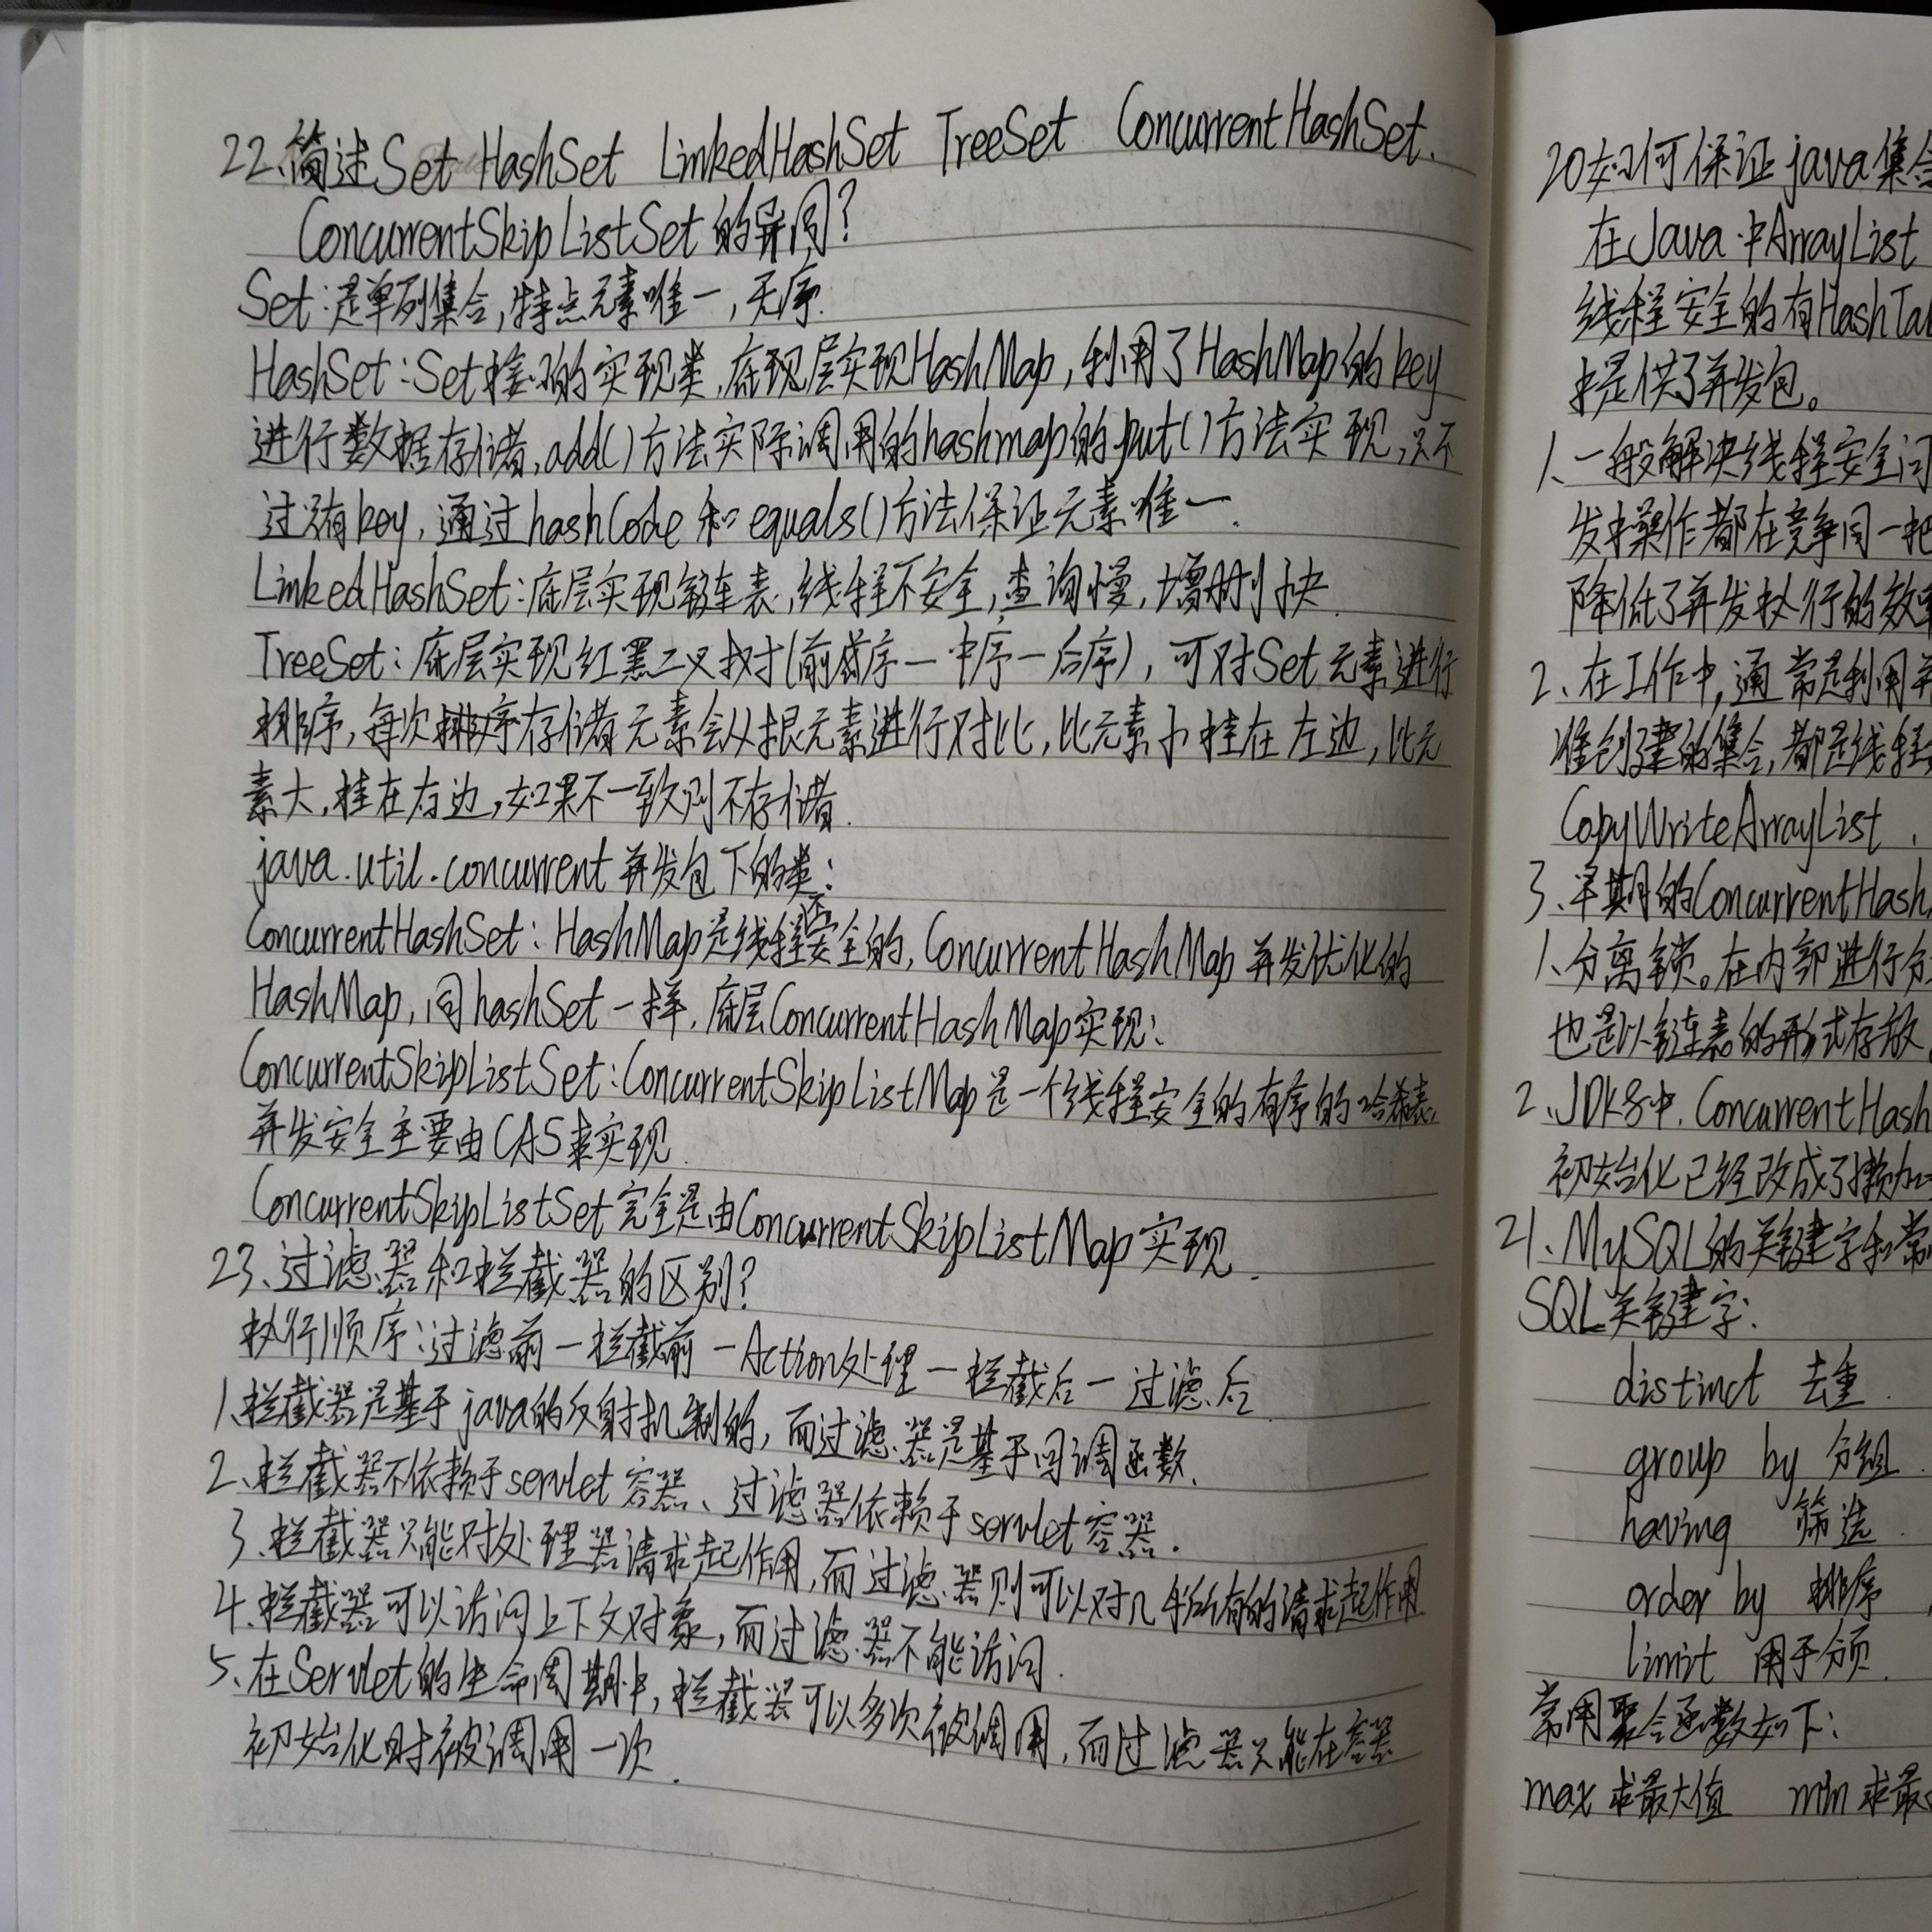 22、简述Set HashSet LinkedHashSet TreeSet ConcurrentHashSet、
ConcurrentSkipListSet的异同?
Set:是单列集合,特点元素唯一,无序.
HashSet:Set接口的实现类,底现层实现HashMap,利用了HashMap的key
进行数据存储,add()方法实际调用的hashmap的put()方法实现,只不
过只有key,通过hashCode和equals()方法保证元素唯一.
LinkedHashSet:底层实现链表,线程不安全,查询慢,增删快.
TreeSet:底层实现红黑二叉树(前序一中序一后序),可对Set元素进行
排序,每次排序存储元素会从根元素进行对比,比元素小挂在左边,比元
素大,挂在右边,如果不一致则不存储.
java.util.concurrent并发包下的类:
ConcurrentHashSet:HashMap是线程不安全的,ConcurrentHashMap并发优化的
HashMap,同hashSet一样,底层ConcurrentHashMap实现:
ConcurrentSkipListSet:ConcurrentSkipListMap是一个线程安全的有序的哈希表,
并发安全主要由CAS来实现.
ConcurrentSkipListSet完全是由ConcurrentSkipListMap实现.
23、过滤器和拦截器的区别?
执行顺序:过滤前一拦截前一Action处理一拦截后一过滤后.
1、拦截器是基于java的反射机制的,而过滤器是基于回调函数.
2、拦截器不依赖于servlet容器、过滤器依赖于servlet容器.
3、拦截器只能对处理器请求起作用,而过滤器则可以对几乎所有的请求起作用.
4、拦截器可以访问上下文对象,而过滤器不能访问.
5、在Servlet的生命周期中,拦截器可以多次被调用,而过滤器只能在容器
初始化时被调用一次.
20如何保证java集合
在Java中ArrayList
线程安全的有HashTa
中提供了并发包。
1、一般解决线程安全问
发中操作都在竞争同一把
降低了并发执行的效率
2、在工作中,通常是利用并
准创建的集合,都是线程
CopyWriteArrayList、
3、早期的ConcurrentHash
1、分离锁。在内部进行分
也是以链表的形式存放
2、JDK8中.ConcurrentHash
初始化已经改成了懒加
21、MySQL的关键字和常
SQL关键字:
distinct 去重.
group by 分组.
having 筛选.
order by 排序.
limit 用于分页.
常用聚合函数如下:
max 求最大值 min 求最